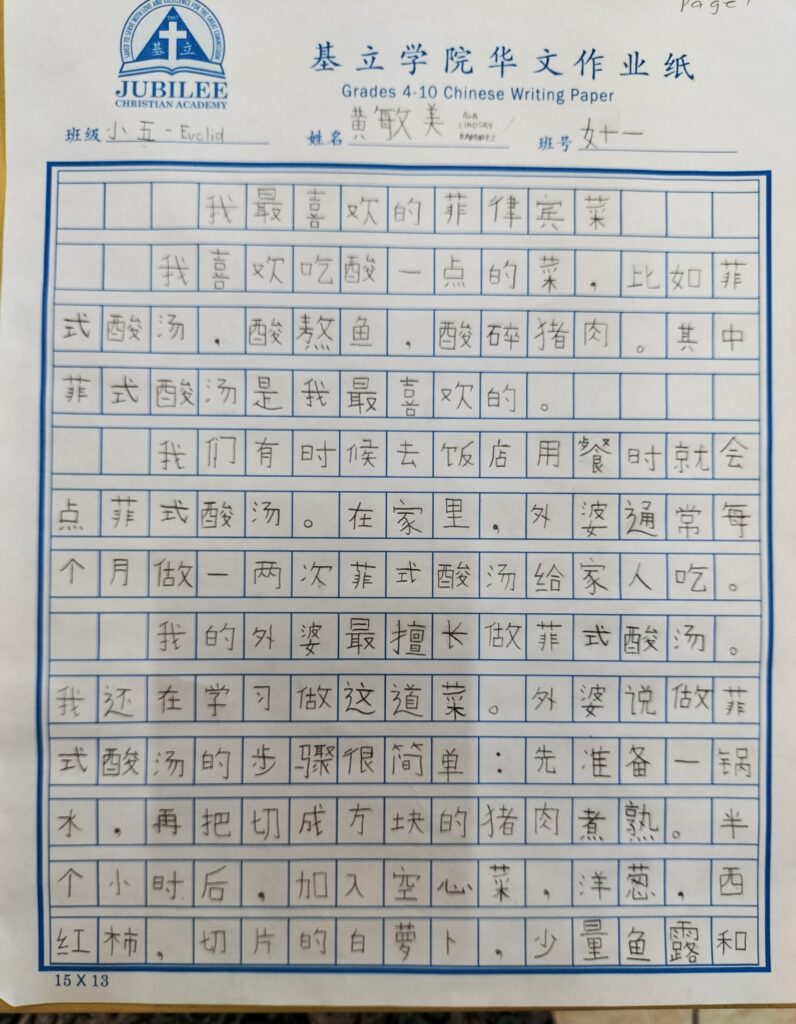 Page 1
GUIDED TO SERVE WITH LOVE AND EXCELLENCE FOR THE GREAT COMMISSION
基立
JUBILEE
CHRISTIAN ACADEMY
基立学院华文作业纸
Grades 4-10 Chinese Writing Paper
班级 小五 - Euclid 姓名 黄敏美 AVA LINDSAY RAMIREZ 班号 女十一
我最喜欢的菲律宾菜
我喜欢吃酸一点的菜，比如菲
式酸汤，酸熬鱼，酸碎猪肉。其中
菲式酸汤是我最喜欢的。
我们有时候去饭店用餐时就会
点菲式酸汤。在家里，外婆通常每
个月做一两次菲式酸汤给家人吃。
我的外婆最擅长做菲式酸汤。
我还在学习做这道菜。外婆说做菲
式酸汤的步骤很简单：先准备一锅
水，再把切成方块的猪肉煮熟。半
个小时后，加入空心菜，洋葱，西
红柿，切片的白萝卜，少量鱼露和
15 X 13